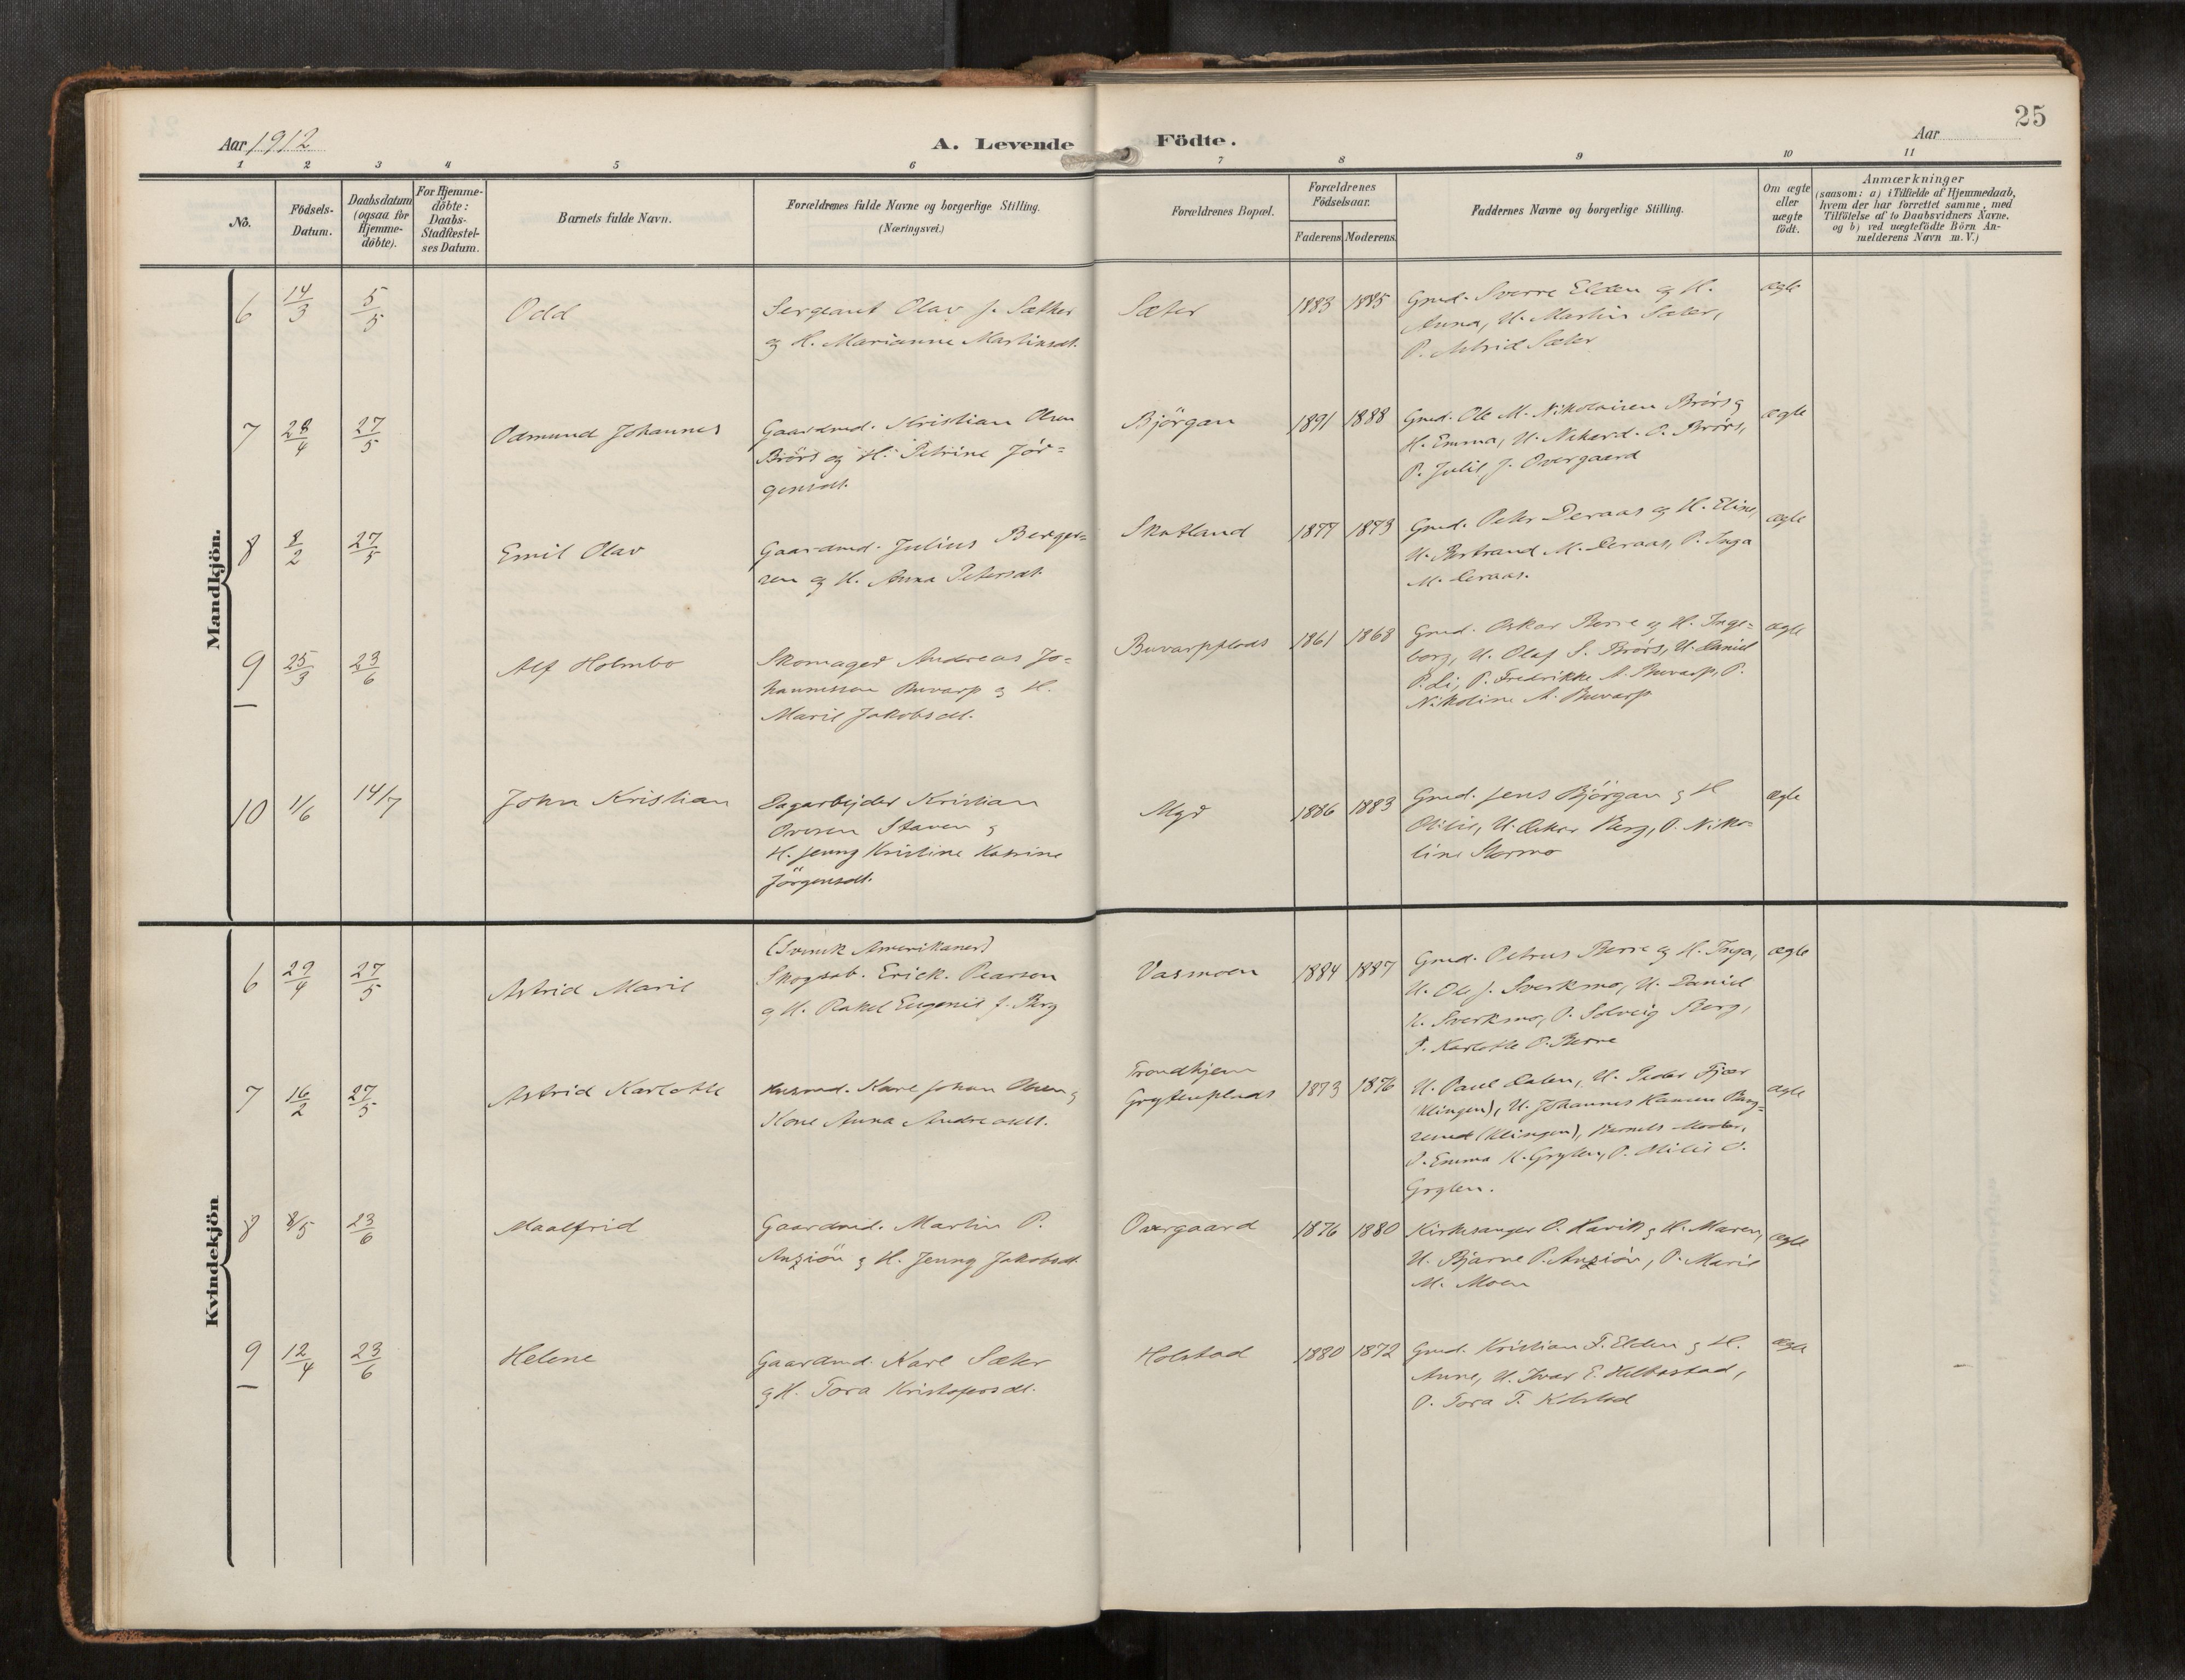 25
Aar 1912
A. Levende Födte.
Aar
1 2 3 4 5 6 7 8 9 10 11
No.
Födsels-
Datum.
Daabsdatum
(ogsaa for
Hjemme-
döbte).
For Hjemme-
döbte:
Daabs-
Stadfæstel-
ses Datum.
Barnets fulde Navn.
Forældrenes fulde Navne og borgerlige Stilling.
(Næringsvei.)
Forældrenes Bopæl.
Forældrenes
Födselsaar.
Faderens Moderens
Faddernes Navne og borgerlige Stilling.
Om ægte
eller
uægte
födt.
Anmærkninger
(saasom: a) i Tilfælde af Hjemmedaab,
hvem der har forrettet samme, med
Tilföielse af to Daabsvidners Navne.
og b) ved uægtefödte Börn An-
melderens Navn m. V.)
Mandkjön.
6 14/3 5/5 Odd
Sergeant Olav J. Sæther
og H. Marianne Martinsdt.
Sæter 1883 1885
Gmd. Sverre Elden og H.
Anna, U. Martin Sæter,
P. Astrid Sæter
ægte
7 28/4 27/5 Odmund Johannes
Gaardmd. Kristian Olsen
Brörs og H. Petrine Jör=
gensdt.
Björgan 1891 1888
Gmd. Ole M. Nikolaisen Brörs og
H. Emma, U. O. Brörs,
P. Julie J. Overgaard
ægte
8 8/2 27/5 Emil Olav
Gaardmd. Julius Berger=
sen og H. Anna Petersdt.
Skatland 1877 1873
Gmd. Peter Deraas og H. Elise,
U. Bertrand M. Deraas, P. Inga
M. Deraas.
ægte
9 25/3 23/6 Alf Holmbo
Skomager Andreas Jo=
hannessen Buvarp og H.
Marie Jakobsdt.
Buvarpplads 1861 1868
Gmd. Oskar Berre og H. Inge=
borg, U. Olaf S. Brörs, U. Daniel
P. Li, P. Fredrikke A. Buvarp, P.
Nikoline A. Buvarp
ægte
10 1/6 14/7 John Kristian
Dagarbejder Kristian
Ovesen Staven og
H. Jenny Kristine Katrine
Jörgensdt.
Myr 1886 1883
Gmd. Jens Björgan og H
Otilie, U. Oskar Berg, P. Niko=
line Stormo
ægte
Kvindekjön
6 29/4 27/5 Astrid Marie
(Svensk Amerikaner)
Skogsab. Erick. Pearson
og H. Rakel Eugenie J. Berg
Vasmoen 1884 1887
Gmd. Petrus Berre og H. Inga,
U. Ole J. Sverkmo, U. Daniel
K. Sverkmo, P. Solveig Berg,
P. Karlotte P. Berre
ægte
7 16/2 27/5 Astrid Karlotte
Husmd. Karl Johan Olsen og
Kone Anna Andreasdt.
Trondhjem
Grytenplads 1873 1876
U. Paul Dalen, U. Peder Fjær
(Klingen), U. Johannes Hansen Berg=
sund (Klingen), Barnets Moder,
P. Emma K. Gryten, P. Otilie O.
Gryten.
ægte
8 8/5 23/6 Maalfrid
Gaardmd. Martin P.
Anziön og H. Jenny Jakobsdt
Overgaard 1876 1880
Kirkesanger O. Havik og H. Maren,
U. Bjarne P. Anziön, P. Marie
M. Moen
ægte
9 12/4 23/6 Helene
Gaardmd. Karl Sæter
og H. Tora Kristofersdt.
Holstad 1880 1872
Gmd. Kristian F. Elden og H.
Anne, U. Ivar E. Helbostad,
P. Tora T.
ægte